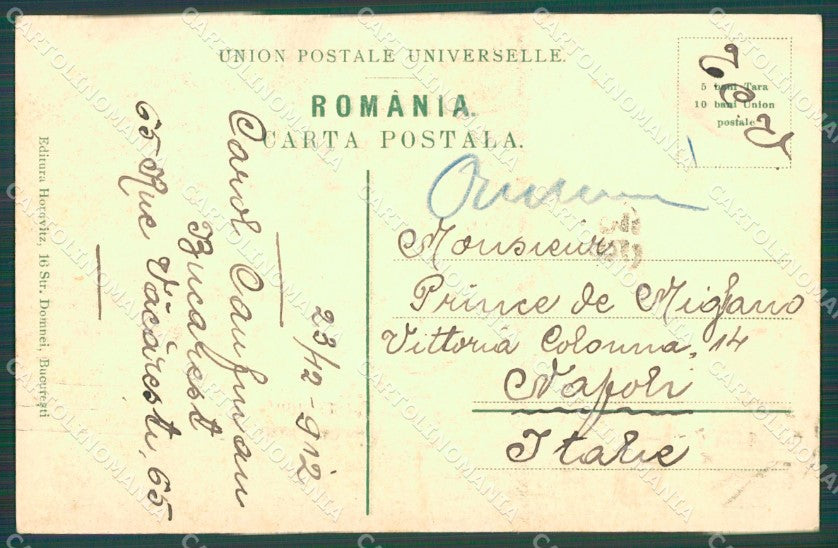 UNION POSTALE UNIVERSELLE.
ROMÂNIA.
CARTA POSTALA.
5 bani Tara
10 bani Union
postale
T.C.V.
Monsieur
Prince de Migliano
Vittoria Colonna, 14
Napoli
Italie
23/12-912
Carol Caufman
Bucarest
65 Rue Văcăresti, 65
Editura Horovitz, 16 Str. Domnei, Bucureşti
CARTOLINOMANIA